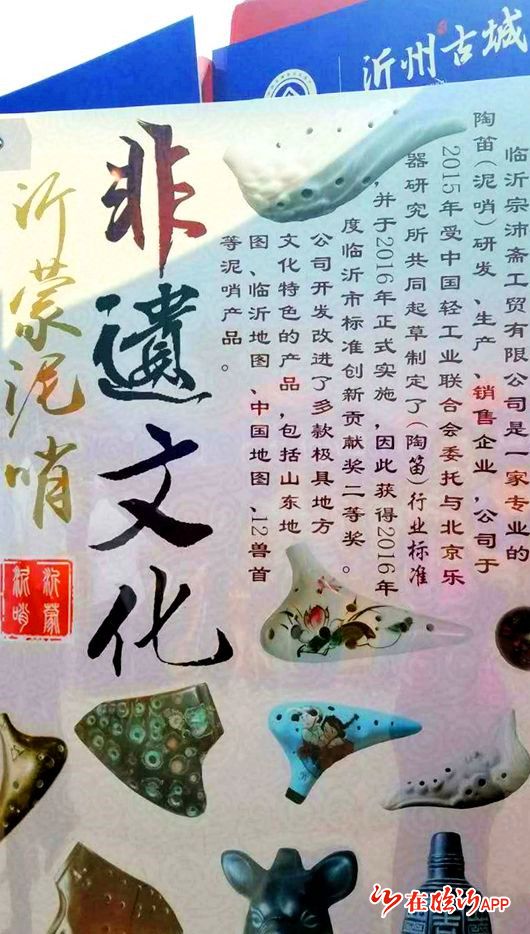 沂州古城
临沂宗沛斋工贸有限公司是一家专业的
陶笛(泥哨)研发、生产、销售企业,公司于
2015年受中国轻工业联合会委托与北京乐
器研究所共同起草制定了(陶笛)行业标准
,并于2016年正式实施,因此获得2016年
度临沂市标准创新贡献奖二等奖。
公司开发改进了多款极具地方
文化特色的产品,包括山东地
图、临沂地图、中国地图、12兽首
等泥哨产品。
非遗文化
沂蒙泥哨
沂蒙
泥哨
在临沂APP